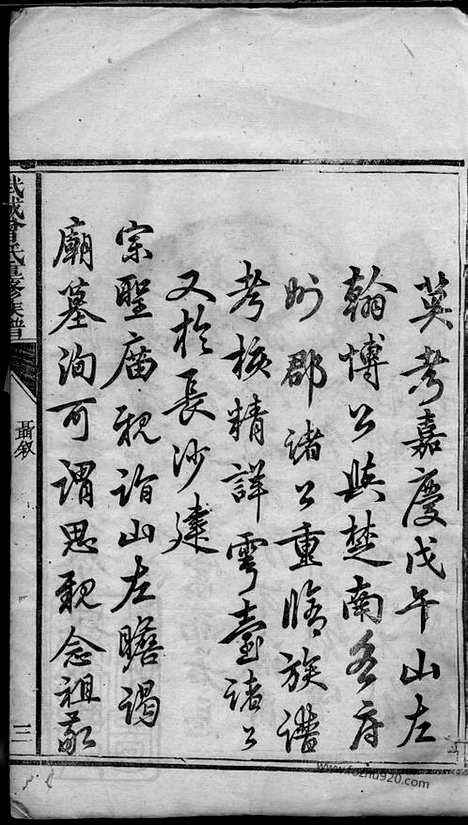 英考嘉慶戊午山左
翰博公與楚南各府
州郡諸公重脩族譜
考核精詳雩臺諸公
又於長沙建
宗聖廟親詣山左瞻謁
廟墓洵可謂思親念祖敬
武城曾氏重修族譜
聶叙
三
www.fozhu920.com